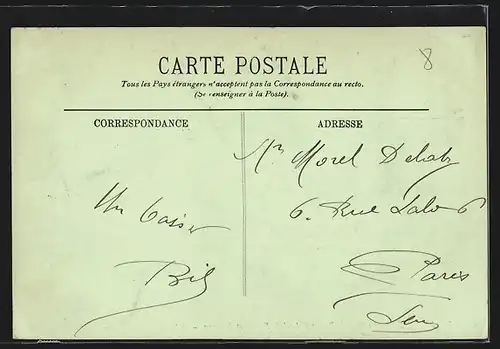 CARTE POSTALE
Tous les Pays étrangers n'acceptent pas la Correspondance au recto.
(Se renseigner à la Poste).
CORRESPONDANCE
ADRESSE
8
Mr Morel
6. Rue
Un baiser
Paris